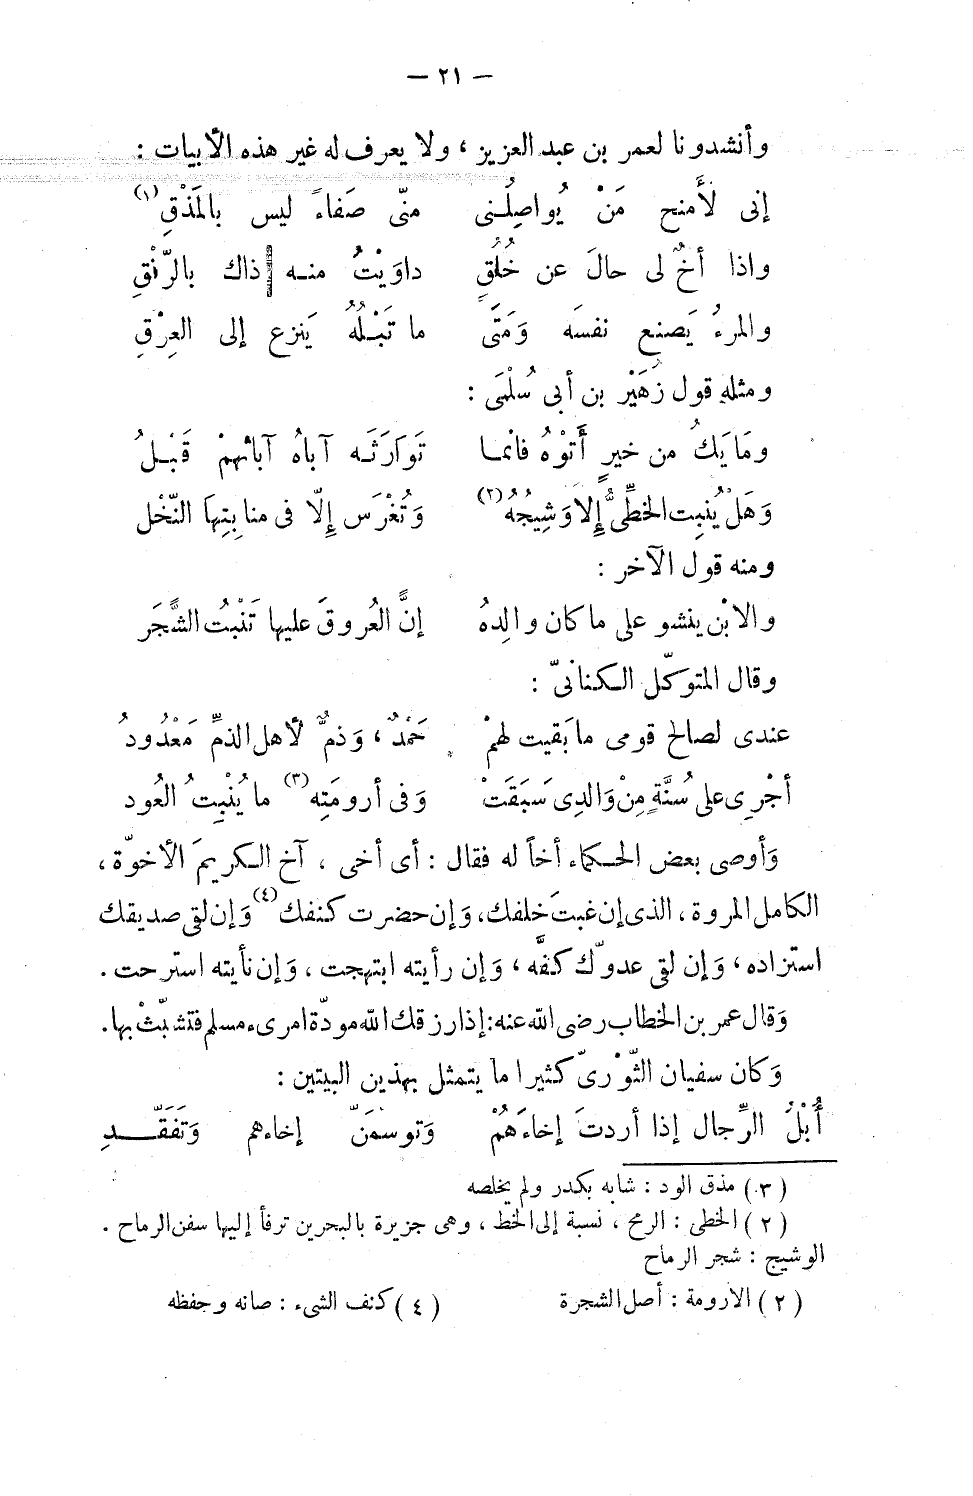 — ٢١ —
وأنشدونا لعمر بن عبد العزيز ، ولا يعرف له غير هذه الأبيات :
إنى لَأمنح مَنْ يُواصِلُنى منّى صَفاءً ليس بالمَذْقِ (١)
واذا أخٌ لى حالَ عن خُلُقٍ داوَيْتُ منه ذاك بالرِّفْقِ
والمرءُ يَصنع نفسَه وَمَتَى ما تَبْلُهُ يَنزع إلى العِرْقِ
ومثله قول زُهَيْر بن أبى سُلْمَى :
ومَا يَكُ من خيرٍ أتَوْهُ فانما تَوارَثَه آباءُ آبائهمْ قَبْلُ
وَهَلْ يُنبِت الخَطِّىَّ إِلا وَشِيجُهُ (٢) وَتُغْرَس إِلّا فى منابِتِها النَّخْل
ومنه قول الآخر :
والابْن ينشو على ما كان والِدهُ إنَّ العُروقَ عليها تَنْبُت الشَّجَر
وقال المتوكّل الكنانىّ :
عندى لصالح قومى ما بَقيت لهمْ حَمْدٌ ، وَذمٌّ لأهل الذمِّ مَعْدُودُ
أجْرِى على سُنَّةٍ مِنْ وَالدِى سَبَقَتْ وَفى أرومَتِه (٣) ما يُنْبِتُ العُود
وَأوصى بعض الحكماء أخاً له فقال : أى أخى ، آخ الكريمَ الأخوّة ،
الكامل المروة ، الذى إن غبتَ خلفك ، وَإن حضرت كنفك (٤) وَإن لقى صديقك
استزاده ، وَإن لقى عدوّك كفَّه ، وَإن رأيته ابتهجت ، وَإن نأيته استرحت .
وَقال عمر بن الخطاب رضى الله عنه : إذا رزقك الله مودّة امرىء مسلم فتشبَّثْ بها .
وَكان سفيان الثَّوْرىّ كثيرا ما يتمثل بهذين البيتين :
أُبْلُ الرِّجال إذا أردتَ إخاءَهُمْ وَتوسّمَنَّ إخاءهم وَتَفَقَّدِ
( ٣ ) مذق الود : شابه بكدر ولم يخلصه
( ٢ ) الخطى : الرمح ، نسبة إلى الخط ، وهى جزيرة بالبحرين ترفأ إليها سفن الرماح .
الوشيج : شجر الرماح
( ٢ ) الارومة : أصل الشجرة ( ٤ ) كنف الشىء : صانه وحفظه